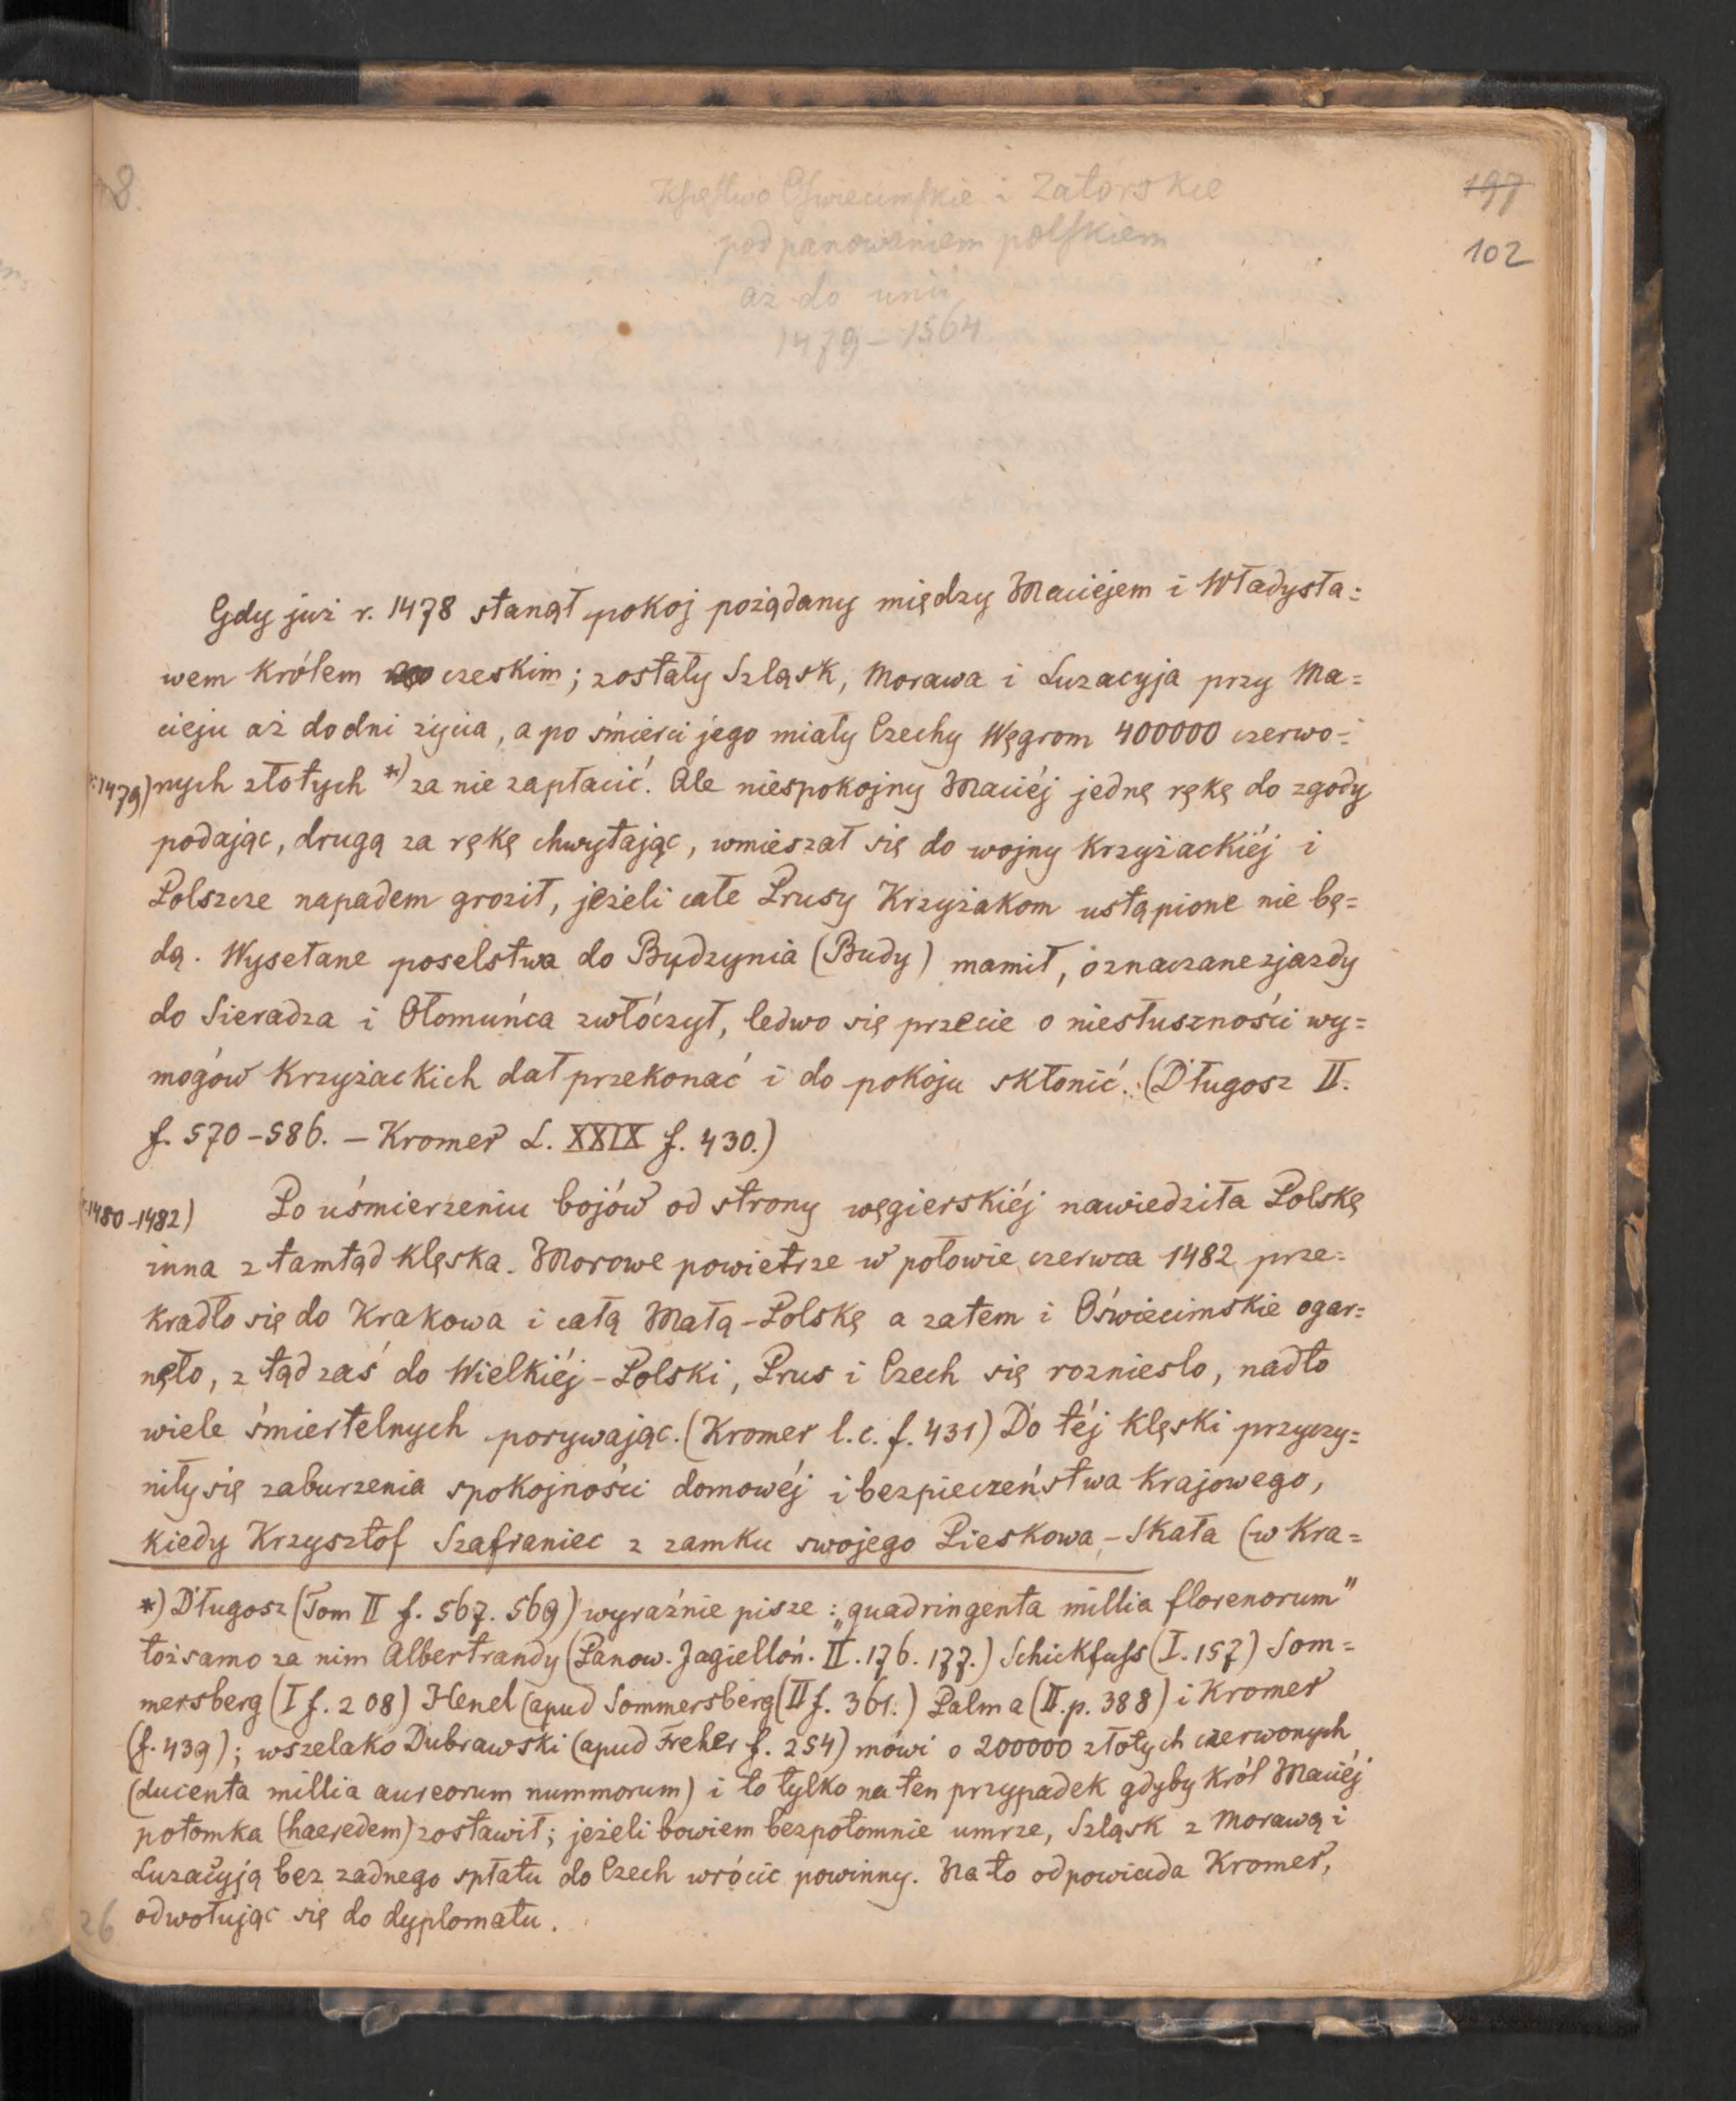 8.
Księstwo Oświecimskie i Zatorskie
197
pod panowaniem polskiem
102
aż do unii
1479–1564
Gdy już r. 1478 stanął pokoj pożądany między Maciejem i Władysła=
wem królem czeskim; zostały Szląsk, Morawa i Luzacyja przy Ma=
cieju aż do dni życia, a po śmierci jego miały Czechy Węgrom 400000 czerwo=
(:1479) nych złotych *) za nie zapłacić. Ale niespokojny Maciéj jednę rękę do zgody
podając, drugą za rękę chwytając, wmieszał się do wojny krzyżackiéj i
Polszcze napadem groził, jeżeli całe Prusy Krzyżakom ustąpione nie bę=
dą. Wysełane poselstwa do Budzynia (Budy) mamił, oznaczane zjazdy
do Sieradza i Ołomuńca zwłóczył, ledwo się przecie o niesłuszności wy=
mogów Krzyżackich dał przekonać i do pokoju skłonić. (Długosz II.
f. 570–586. – Kromer L. XXIX f. 430.)
(:1480–1482) Po uśmierzeniu bojów od strony węgierskiéj nawiedziła Polskę
inna z tamtąd klęska. Morowe powietrze w połowie czerwca 1482 prze=
kradło się do Krakowa i całą Małą-Polskę a zatem i Oświecimskie ogar=
nęło, z tąd zaś do Wielkiéj-Polski, Prus i Czech się rozniesło, nadto
wiele śmiertelnych porywając. (Kromer l. c. f. 431) Do téj klęski przyczy=
niły się zaburzenia spokojności domowéj i bezpieczeństwa krajowego,
kiedy Krzysztof Szafraniec z zamku swojego Pieskowa-Skała (w Kra=
*) Długosz (Tom II f. 567. 569) wyraźnie pisze: „quadringenta millia florenorum"
tożsamo za nim Albertrandy (Panow. Jagielloń. II. 176. 177.) Schickfuss (I. 157) Som=
mersberg (I f. 208) Henel (apud Sommersberg (II f. 361.) Palma (II. p. 388) i Kromer
(f. 439); wszelako Dubrawski (apud Freher f. 254) mówi o 200000 złotych czerwonych
(ducenta millia aureorum nummorum) i to tylko na ten przypadek gdyby król Maciéj
potomka (haeredem) zostawił; jeżeli bowiem bezpotomnie umrze, Szląsk z Morawą i
Luzacyją bez żadnego spłatu do Czech wrócic powinny. Na to odpowiada Kromer,
26 odwołując się do dyplomatu.